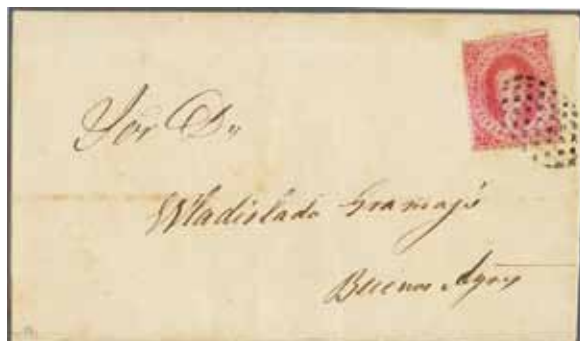 Sor Dn
Wladislado Gramajo
Buenos Ayres